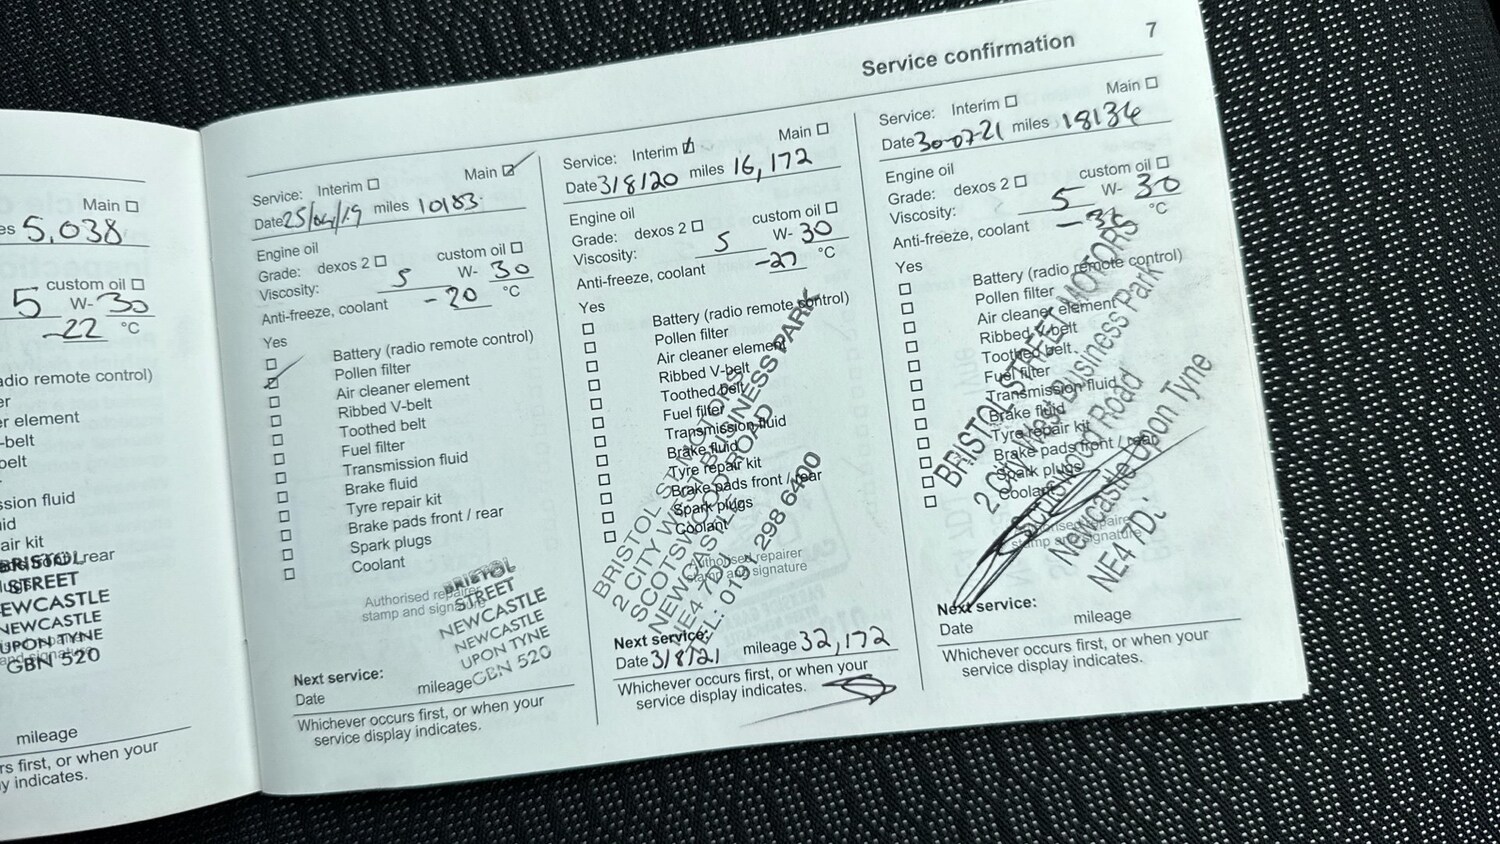 Main
es 5,038
custom oil
5 W- 30
-22 °C
adio remote control)
er
er element
-belt
belt
ssion fluid
id
air kit
rear
BRISTOL
STREET
EWCASTLE
NEWCASTLE
UPON TYNE
GBN 520
mileage
rs first, or when your
y indicates.
Service: Interim Main
Date 25/04/19 miles 10183
Engine oil
Grade: dexos 2 custom oil
Viscosity: 5 W- 30
Anti-freeze, coolant -20 °C
Yes
Battery (radio remote control)
Pollen filter
Air cleaner element
Ribbed V-belt
Toothed belt
Fuel filter
Transmission fluid
Brake fluid
Tyre repair kit
Brake pads front / rear
Spark plugs
Coolant
Authorised repairer
stamp and signature
BRISTOL
STREET
NEWCASTLE
NEWCASTLE
UPON TYNE
GBN 520
Next service:
Date mileage
Whichever occurs first, or when your
service display indicates.
Service: Interim Main
Date 3/8/20 miles 16,172
Engine oil
Grade: dexos 2 custom oil
Viscosity: 5 W- 30
Anti-freeze, coolant -27 °C
Yes
Battery (radio remote control)
Pollen filter
Air cleaner element
Ribbed V-belt
Toothed belt
Fuel filter
Transmission fluid
Brake fluid
Tyre repair kit
Brake pads front / rear
Spark plugs
Coolant
Authorised repairer
stamp and signature
BRISTOL ST MOTORS
2 CITY WEST BUSINESS PARK
SCOTSWOOD ROAD
NEWCASTLE
NE4 7DJ
TEL: 0191 298 6400
Next service:
Date 3/8/21 mileage 32,172
Whichever occurs first, or when your
service display indicates.
7
Service confirmation
Service: Interim Main
Date 30-07-21 miles 18134
Engine oil
Grade: dexos 2 custom oil
Viscosity: 5 W- 30
Anti-freeze, coolant °C
Yes
Battery (radio remote control)
Pollen filter
Air cleaner element
Ribbed V-belt
Toothed belt
Fuel filter
Transmission fluid
Brake fluid
Tyre repair kit
Brake pads front / rear
Spark plugs
Coolant
Authorised repairer
stamp and signature
BRISTOL STREET MOTORS
2 City West Business Park
Road
Newcastle Upon Tyne
NE4 7D
Next service:
Date mileage
Whichever occurs first, or when your
service display indicates.